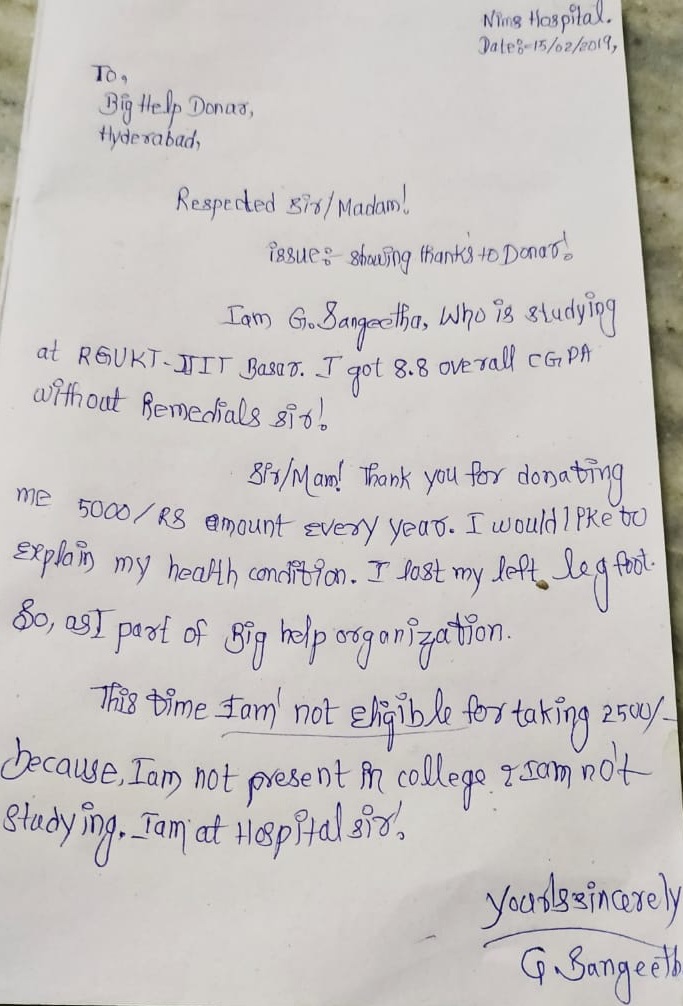 Nims Hospital.
Date:-15/02/2019,
To,
Big Help Donar,
Hyderabad,
Respected sir/Madam!
issue:- showing thanks to Donar!.
Iam G.Sangeetha, Who is studying
at RGUKT-IIIT Basar. I got 8.8 overall CGPA
without Remedials sir!.
Sir/Mam! Thank you for donating
me 5000/RS amount every year. I would like to
explain my health condition. I lost my left leg foot.
So, as I part of Big help organization.
This time Iam not eligible for taking 2500/-
because, Iam not present in college & Iam not
studying. Iam at Hospital sir!.
yours sincerely
G.Sangeeth